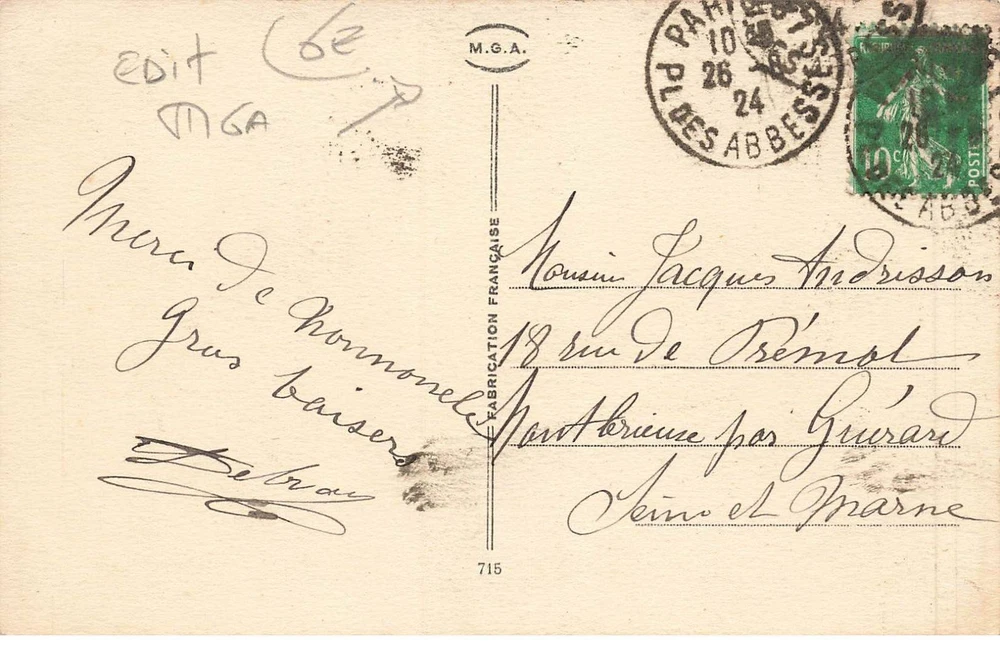 EDIT 6E
MGA
M.G.A.
PARIS
10
26
24
PL. DES ABBESSES
10c
POSTE
Merci de
Gros baisers
Debray
FABRICATION FRANÇAISE
Monsieur Jacques Andrisson
18 rue de Prémol
Montbrieuse par Guérard
Seine et Marne
715